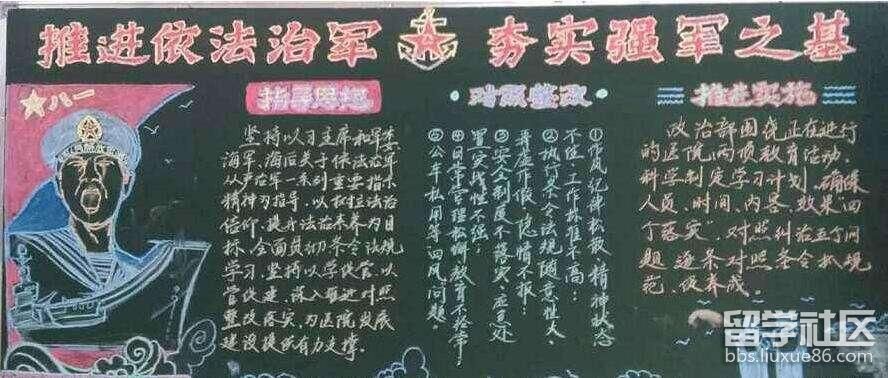 推进依法治军 夯实强军之基
八一
指导思想
坚持以习主席和军委
海军、海后关于依法治军
从严治军一系列重要指示
精神为指导,以树立法治
信仰、提升法治素养为目
标,全面贯彻条令法规
学习,坚持以学促管、以
管促建,深入推进对照
整改落实,为医院发展
建设提供有力支撑。
对照整改
①作风纪律松散,精神状态
不佳,工作标准不高;
②执行条令法规随意性大,
弄虚作假、隐情不报;
③安全制度不落实,应急处
置实战性不强;
④日常管理松懈,教育不经常;
⑤公车私用等四风问题。
推进实施
政治部围绕正在进行
的医院两项教育活动,
科学制定学习计划,确保
人员、时间、内容、效果“四
个落实”,对照纠治五个问
题,逐条对照条令抓规
范、促养成。
留学社区
bbs.liuxue86.com